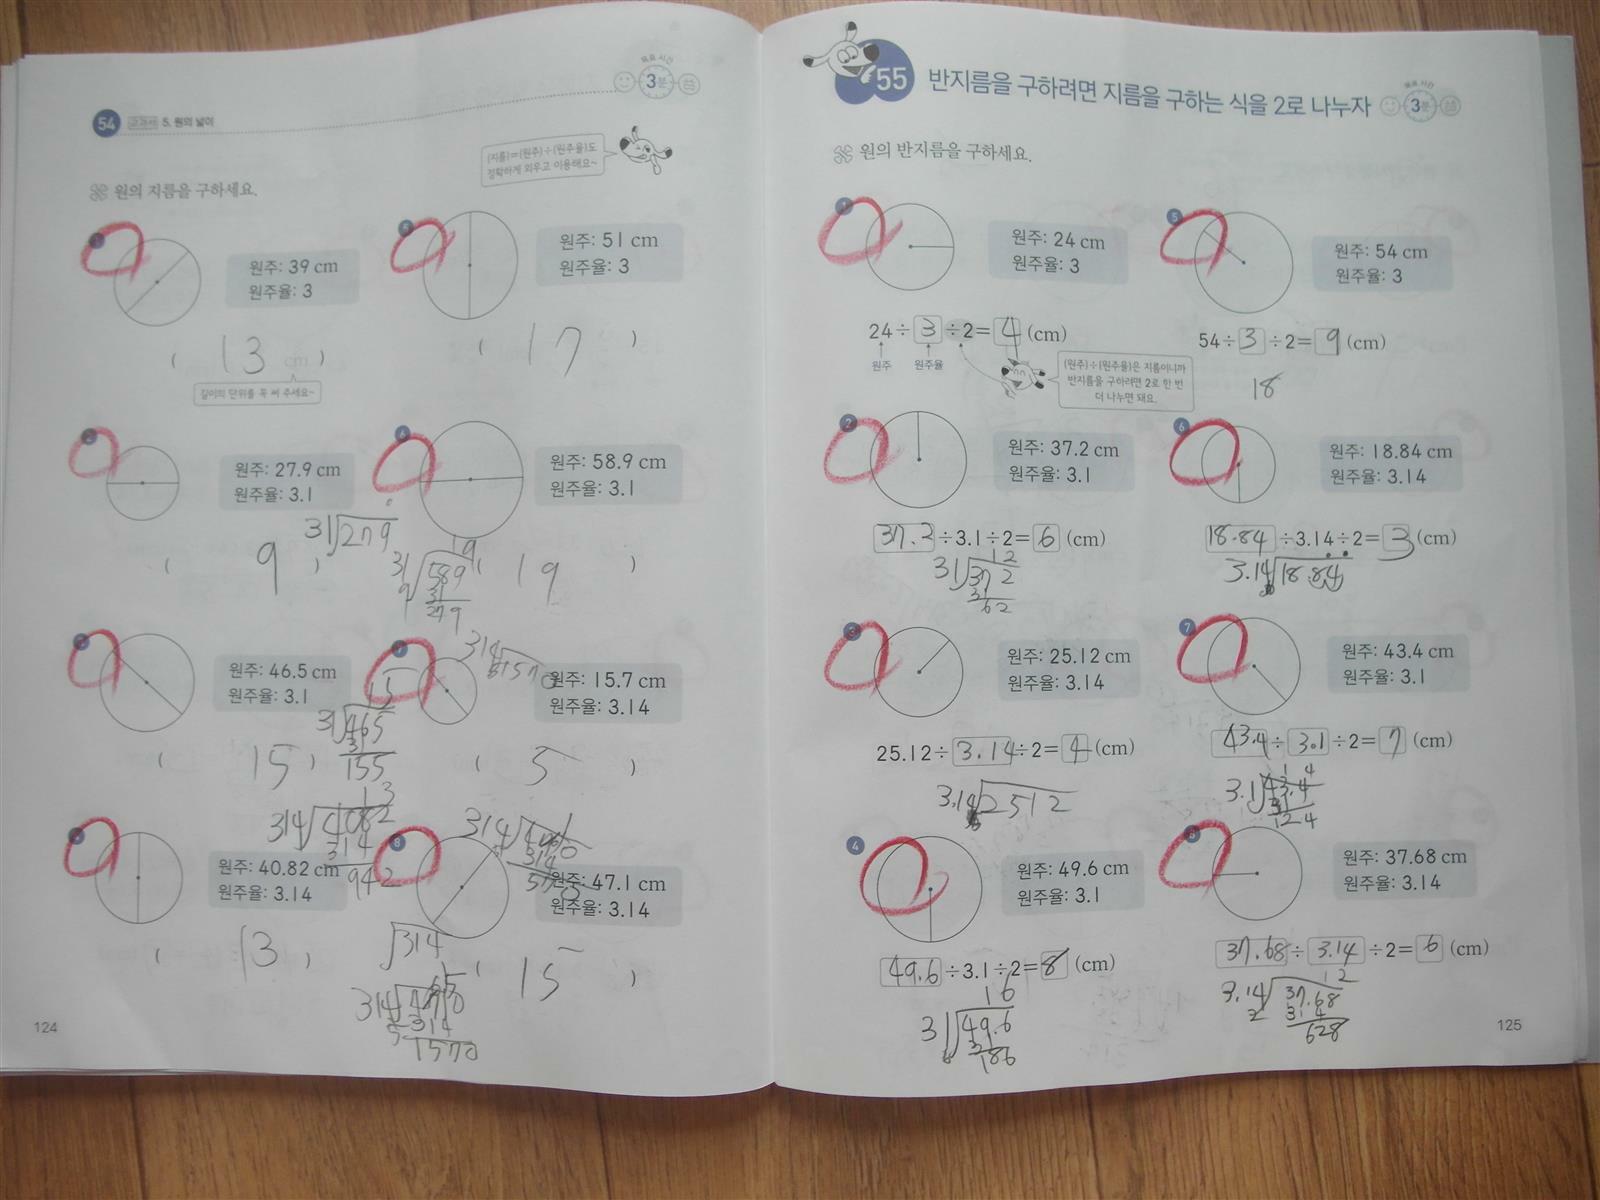 목표 시간
3분
54 교과서 5. 원의 넓이
(지름)=(원주)÷(원주율)도
정확하게 외우고 이용해요~
원의 지름을 구하세요.
1
원주: 39 cm
원주율: 3
( 13 cm )
길이의 단위를 꼭 써 주세요~
5
원주: 51 cm
원주율: 3
( 17 )
2
원주: 27.9 cm
원주율: 3.1
31 279
( 9 )
6
원주: 58.9 cm
원주율: 3.1
19
31 589
31
279
( 19 )
3
원주: 46.5 cm
원주율: 3.1
15
31 465
31
155
( 15 )
7
314 1570
원주: 15.7 cm
원주율: 3.14
( 5 )
4
13
314 4082
314
942
원주: 40.82 cm
원주율: 3.14
( 13 )
8
원주: 47.1 cm
원주율: 3.14
314
15
314 4710
314
1570
( 15 )
124
55 반지름을 구하려면 지름을 구하는 식을 2로 나누자
목표 시간
3분
원의 반지름을 구하세요.
1
원주: 24 cm
원주율: 3
24÷3÷2=4 (cm)
원주 원주율
(원주)÷(원주율)은 지름이니까
반지름을 구하려면 2로 한 번
더 나누면 돼요.
5
원주: 54 cm
원주율: 3
54÷3÷2=9 (cm)
18
2
원주: 37.2 cm
원주율: 3.1
37.2÷3.1÷2=6 (cm)
12
31 372
31
62
6
원주: 18.84 cm
원주율: 3.14
18.84÷3.14÷2=3 (cm)
3.14 18.84
3
원주: 25.12 cm
원주율: 3.14
25.12÷3.14÷2=4 (cm)
3.14 2512
7
원주: 43.4 cm
원주율: 3.1
43.4÷3.1÷2=7 (cm)
14
3.1 43.4
31
12.4
4
원주: 49.6 cm
원주율: 3.1
49.6÷3.1÷2=8 (cm)
16
31 49.6
31
186
8
원주: 37.68 cm
원주율: 3.14
37.68÷3.14÷2=6 (cm)
12
3.14 37.68
31.4
628
125